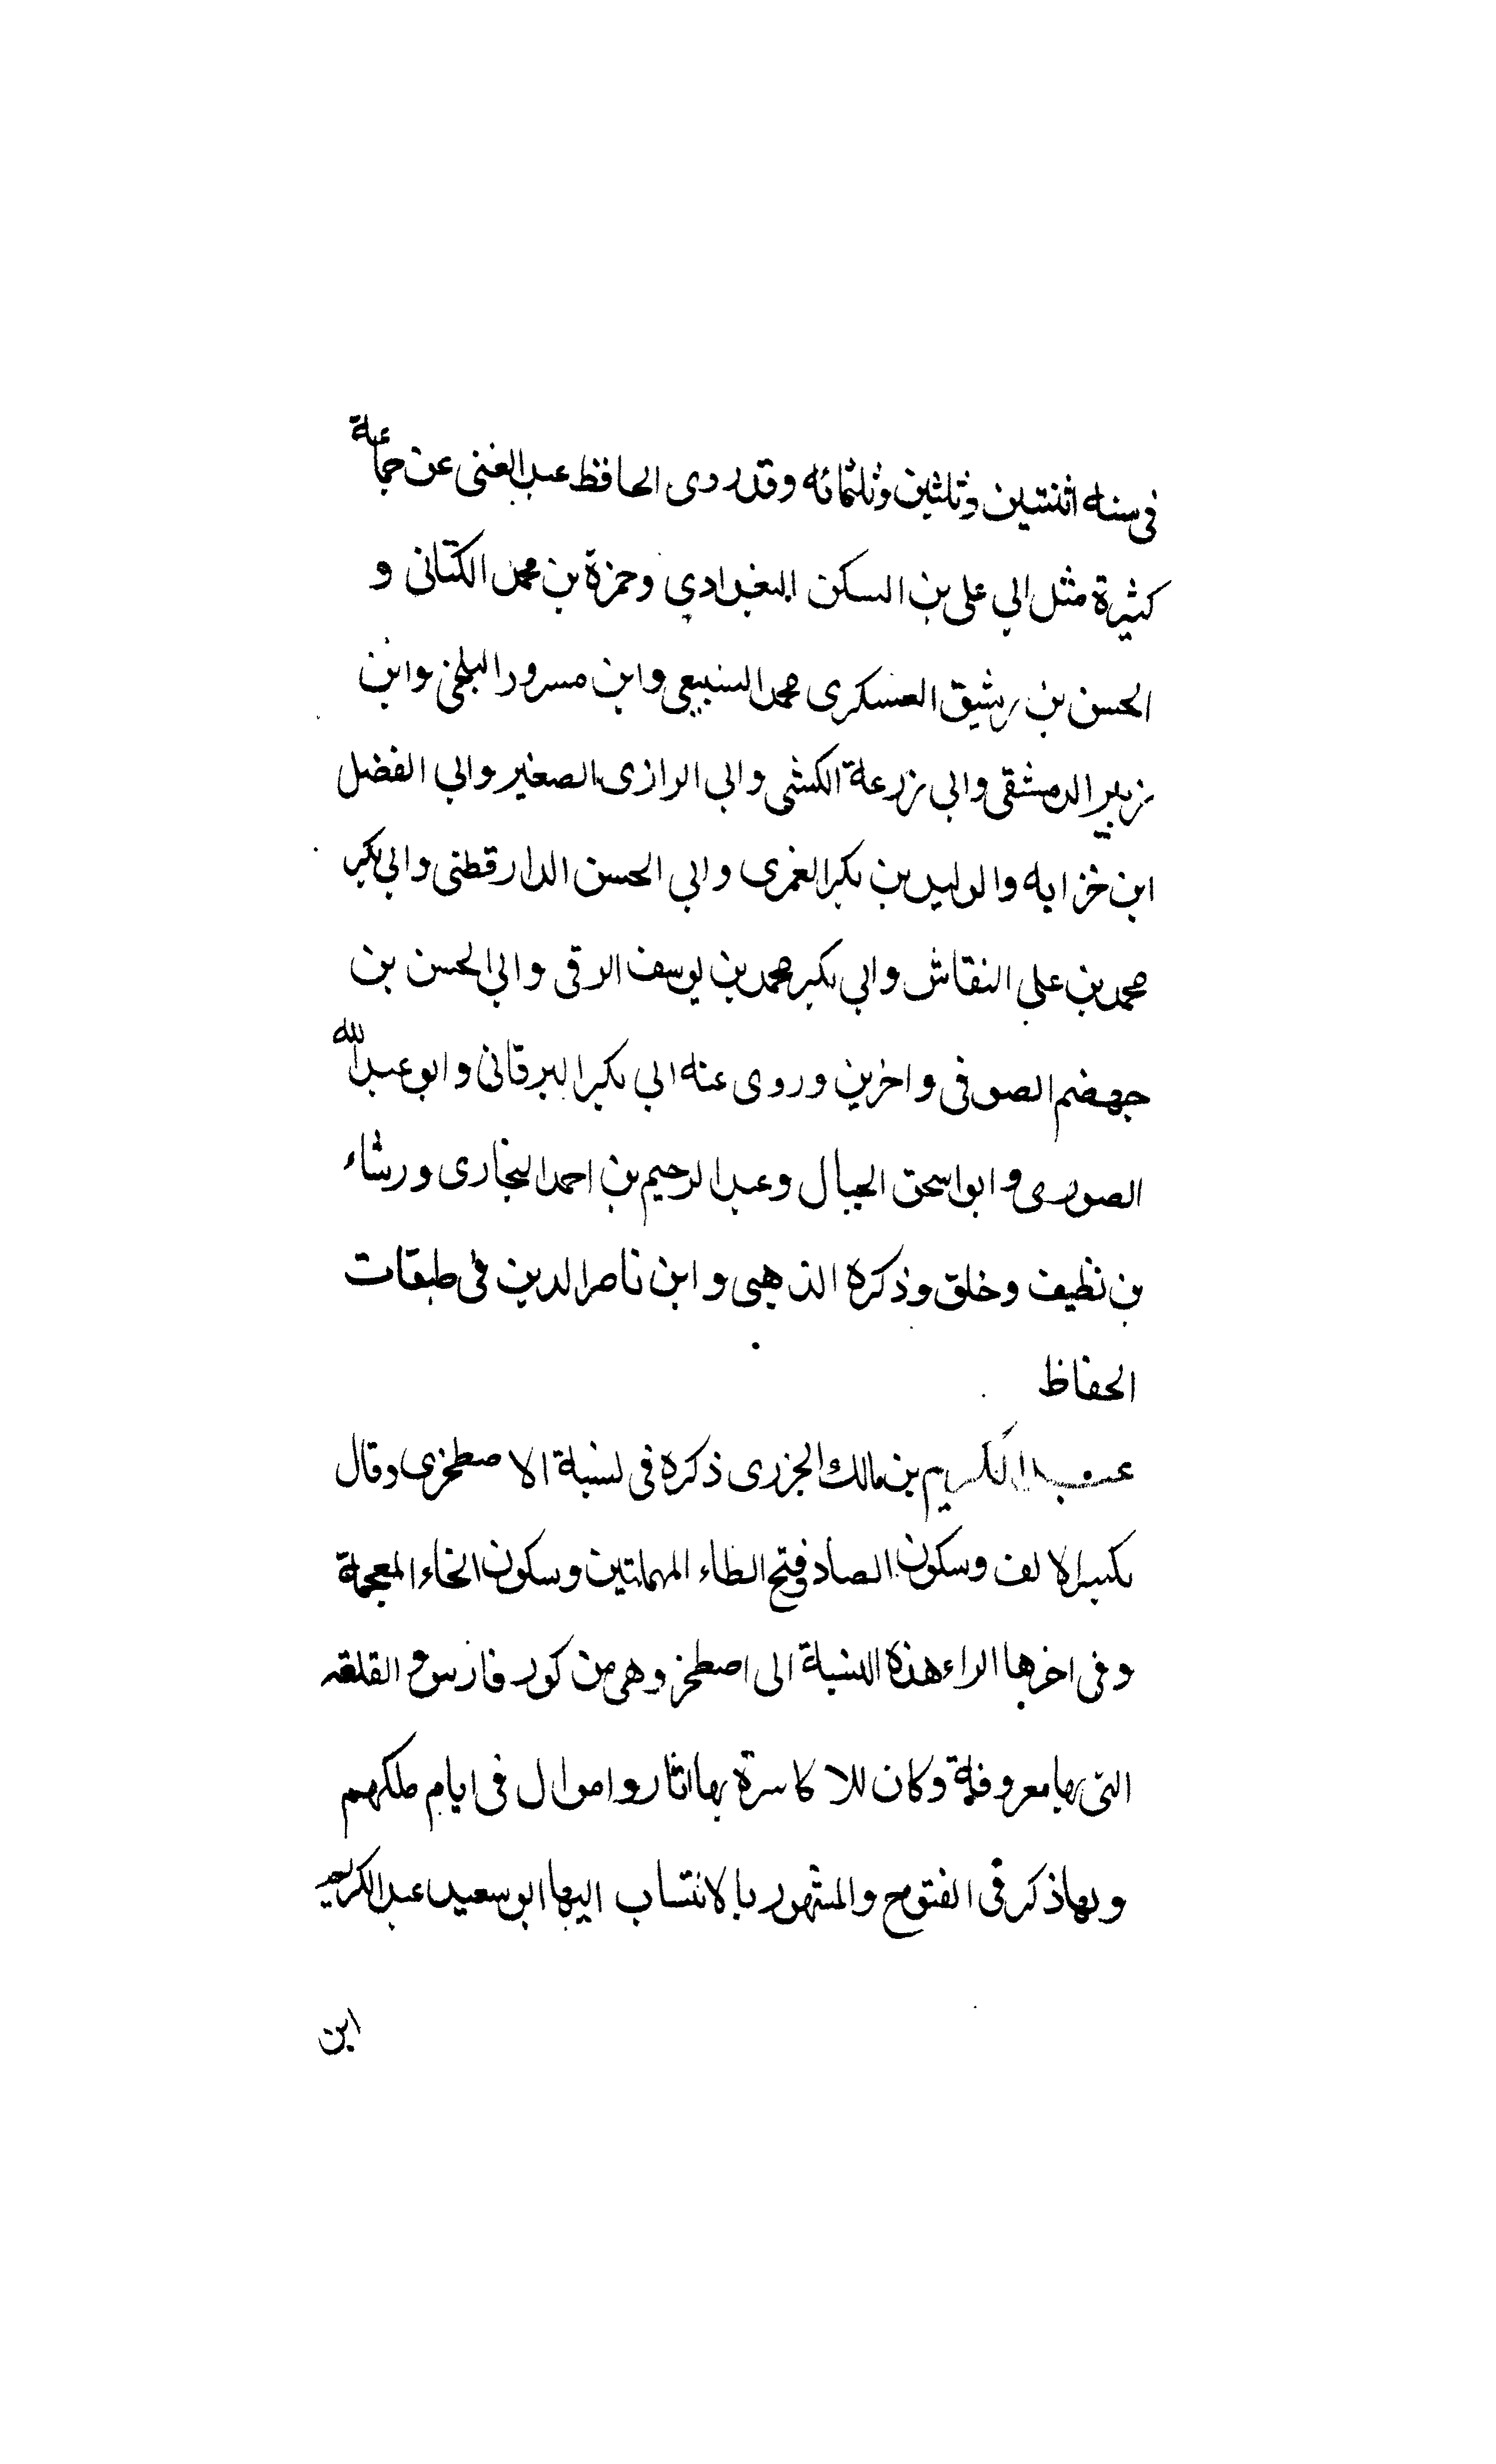 فى سنه اثنتين وثلثين وثلثمائه وقد روى الحافظ عبد الغنى عن جماعة
كثيرة مثل ابي على بن السكن البغدادي وحمزة بن محمد الكتانى و
الحسن بن رشيق العسكرى محمد السبيعي وابن مسرور البلخى وابن
زبير الدمشقى وابى زرعة الكشى وابى الرازى الصغير وابي الفضل
ابن خزابه والوليد بن بكر الغمرى وابى الحسن الدارقطنى وابي بكر
محمد بن على النقاش وابى بكر محمد بن يوسف الرقى وابي الحسن بن
جهضم الصوفى واخرين وروى عنه ابى بكر البرقانى وابو عبد الله
الصورى و ابو اسحق الحبال وعبد الرحيم بن احمد البخارى ورشاء
بن نظيف وخلق وذكره الذهبى و ابن ناصر الدين فى طبقات
الحفاظ
عبد الكريم بن مالك الجزرى ذكره فى نسبة الاصطخرى وقال
بكسر الالف وسكون الصاد وفتح الطاء المهملتين وسكون الخاء المعجمة
وفى اخرها الراء هذه النسبة الى اصطخر وهى من كور فارس و القلعة
التى بها معروفة وكان للاكاسرة بها اثار واموال فى ايام ملكهم
وبها ذكر فى الفتوح والمشهور بالانتساب اليها ابو سعيد عبد الكريم
ابن